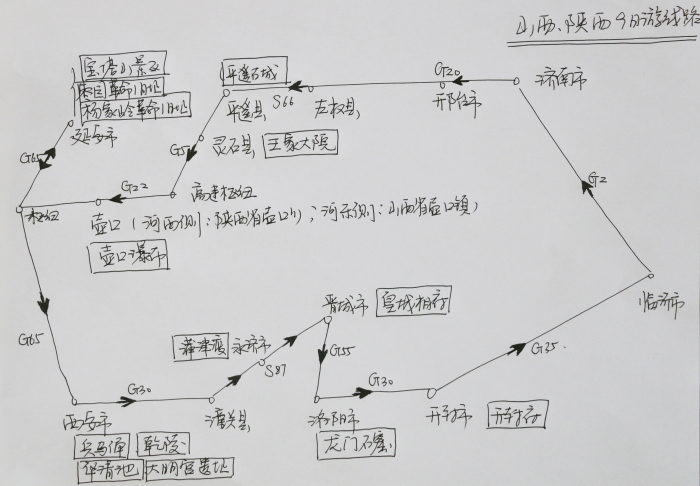 山西、陕西9日游线路
宝塔山景区
枣园革命旧址
杨家岭革命旧址
延安市
平遥古城
平遥县
S66
左权县
G20
邢台市
济南市
G65
G5
灵石县
王家大院
G2
G22
高速枢纽
枢纽
壶口(河西侧:陕西省壶口乡;河东侧:山西省壶口镇)
壶口瀑布
临沂市
晋城市
皇城相府
G65
蒲津渡
永济市
S87
G55
G35
G30
G30
西安市
潼关县
洛阳市
开封市
开封府
兵马俑
乾陵
龙门石窟
华清池
大明宫遗址